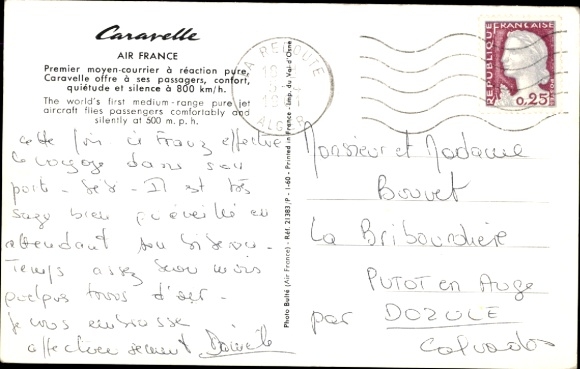 Caravelle
AIR FRANCE
Premier moyen-courrier à réaction pure,
Caravelle offre à ses passagers, confort,
quiétude et silence à 800 km/h.
The world's first medium-range pure jet
aircraft flies passengers comfortably and
silently at 500 m.p.h.
cette fois ci Franz effectue
le voyage dans son
porte-bébé - Il est très
sage bien qu'éveillé en
attendant son biberon -
Temps assez beau mais
quelques trous d'air -
je vous embrasse
affectueusement
Photo Bulté (Air France) - Réf. 21383/P - 1-60 - Printed in France - Imp. du Val d'Osne
LA REDOUTE
ALGER
REPUBLIQUE FRANÇAISE
0,25
Monsieur et Madame
Bouvet
La Bribourdière
PUTOT en Auge
par DOZULE
Calvados